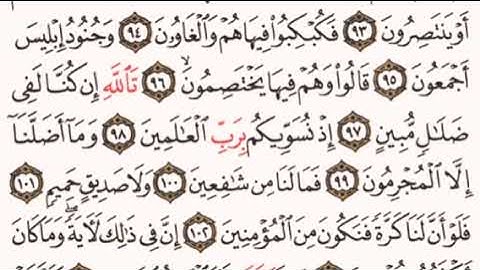 أَوْ يَنتَصِرُونَ ٩٣ فَكُبْكِبُوا۟ فِيهَا هُمْ وَٱلْغَاوُۥنَ ٩٤ وَجُنُودُ إِبْلِيسَ
أَجْمَعُونَ ٩٥ قَالُوا۟ وَهُمْ فِيهَا يَخْتَصِمُونَ ٩٦ تَٱللَّهِ إِن كُنَّا لَفِى
ضَلَـٰلٍ مُّبِينٍ ٩٧ إِذْ نُسَوِّيكُم بِرَبِّ ٱلْعَـٰلَمِينَ ٩٨ وَمَآ أَضَلَّنَآ
إِلَّا ٱلْمُجْرِمُونَ ٩٩ فَمَا لَنَا مِن شَـٰفِعِينَ ١٠٠ وَلَا صَدِيقٍ حَمِيمٍ ١٠١
فَلَوْ أَنَّ لَنَا كَرَّةً فَنَكُونَ مِنَ ٱلْمُؤْمِنِينَ ١٠٢ إِنَّ فِى ذَٰلِكَ لَـَٔايَةً ۖ وَمَا كَانَ